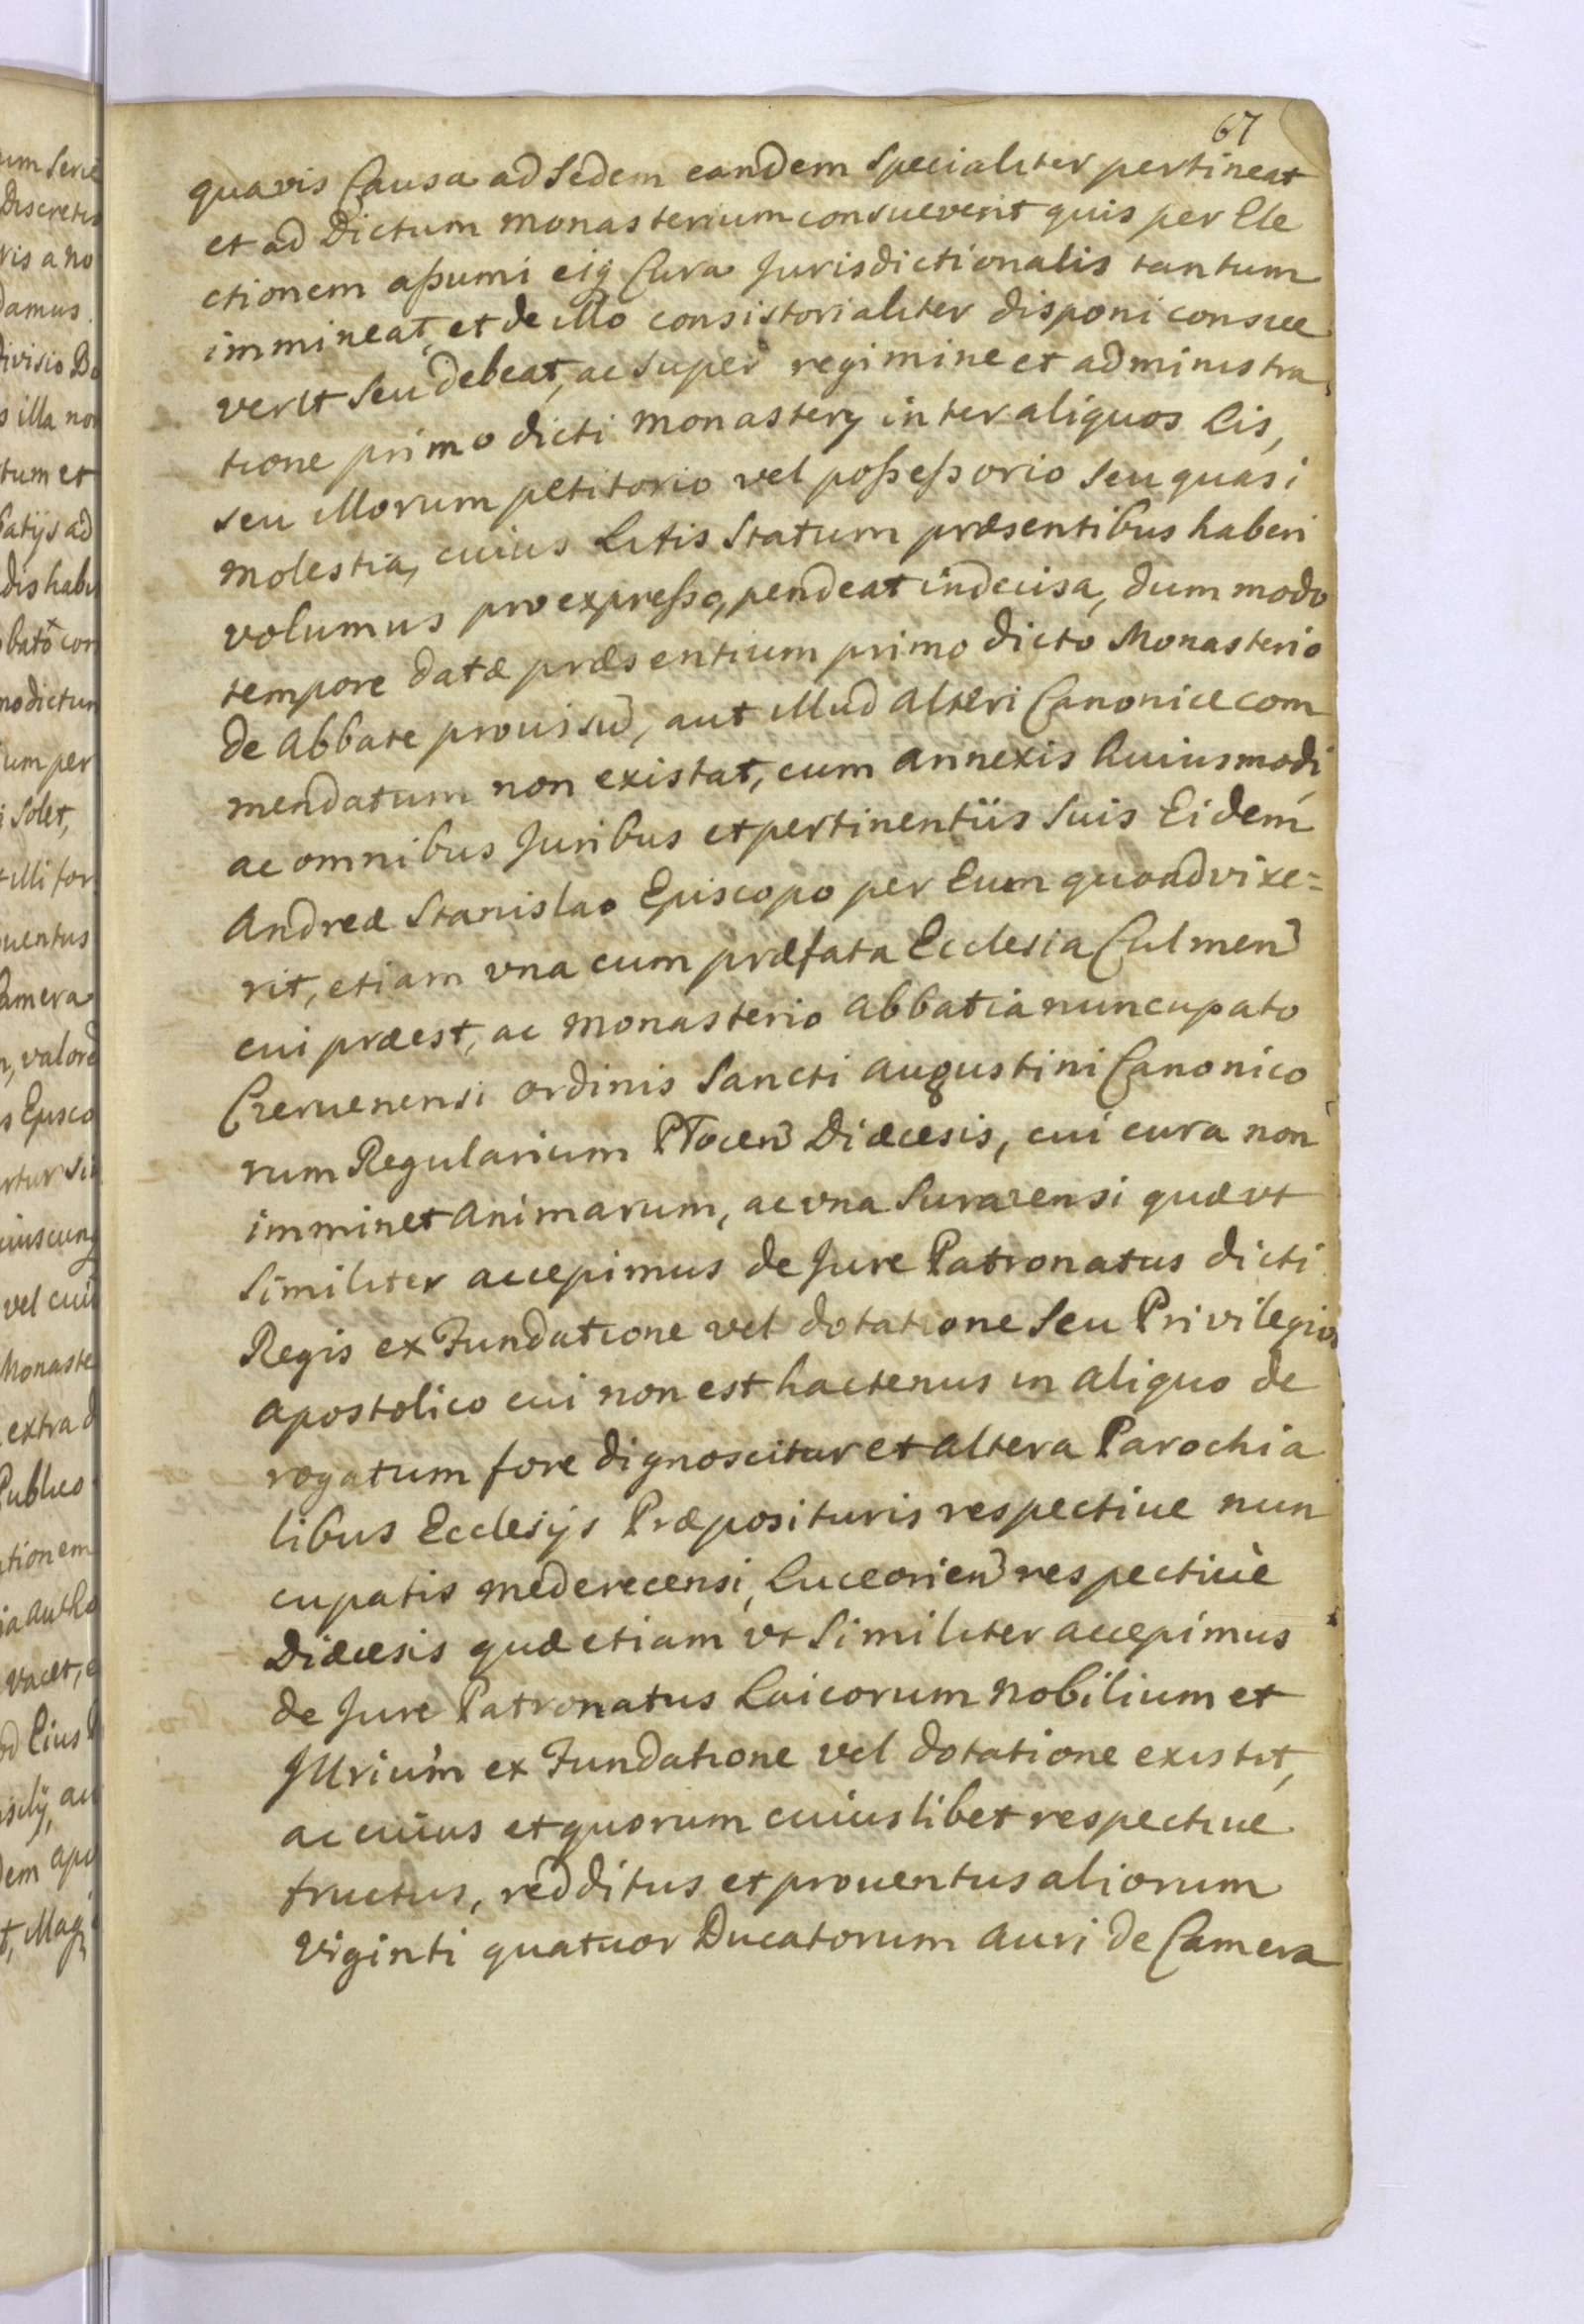 67
quavis Causa ad Sedem eandem Specialiter pertineat
et ad Dictum monasterium consueverit quis per Ele
ctionem aßumi eiq Cura Jurisdictionalis tantum
immineat, et de illo consistorialiter disponi consue
verit Seu debeat, ac Super regimine et administra
tione primo dicti Monastery inter aliquos Lis,
seu illorum petitorio vel poßeßorio Seu quasi
molestia, cuius Litis Statum præsentibus haberi
volumus pro expreßo, pendeat indecisa, dum modo
tempore datæ præsentium primo dicto Monasterio
de Abbate prouisu, aut illud alteri Canonice com
mendatum non existat, cum annexis huiusmodi
ac omnibus Juribus et pertinentiis Suis Eidem
Andreæ Stanislao Episcopo per Eum quoad vixe=
rit, etiam vna cum præfata Ecclesia Culmen
cui præest, ac monasterio Abbatia nuncupato
Czeruenensi ordinis Sancti Augustini Canonico
rum Regularium Plocen Diæcesis, cui cura non
imminet animarum, ac vna Surazensi quæ vt
Similiter accepimus de Jure Patronatus dicti
Regis ex Fundatione vel dotatione Seu Privilegio
Apostolico cui non est hactenus in aliquo de
rogatum fore dignoscitur et altera Parochia
libus Ecclesijs Præposituris respective nun
cupatis mederecensi, Luceorien respectiuè
Diæcesis quæ etiam vt Similiter accepimus
de Jure Patronatus Laicorum nobilium et
Illrium ex Fundatione vel dotatione existit,
ac cuius et quorum cuiuslibet respectiue
fructus, redditus et prouentus aliorum
viginti quatuor Ducatorum auri de Camera